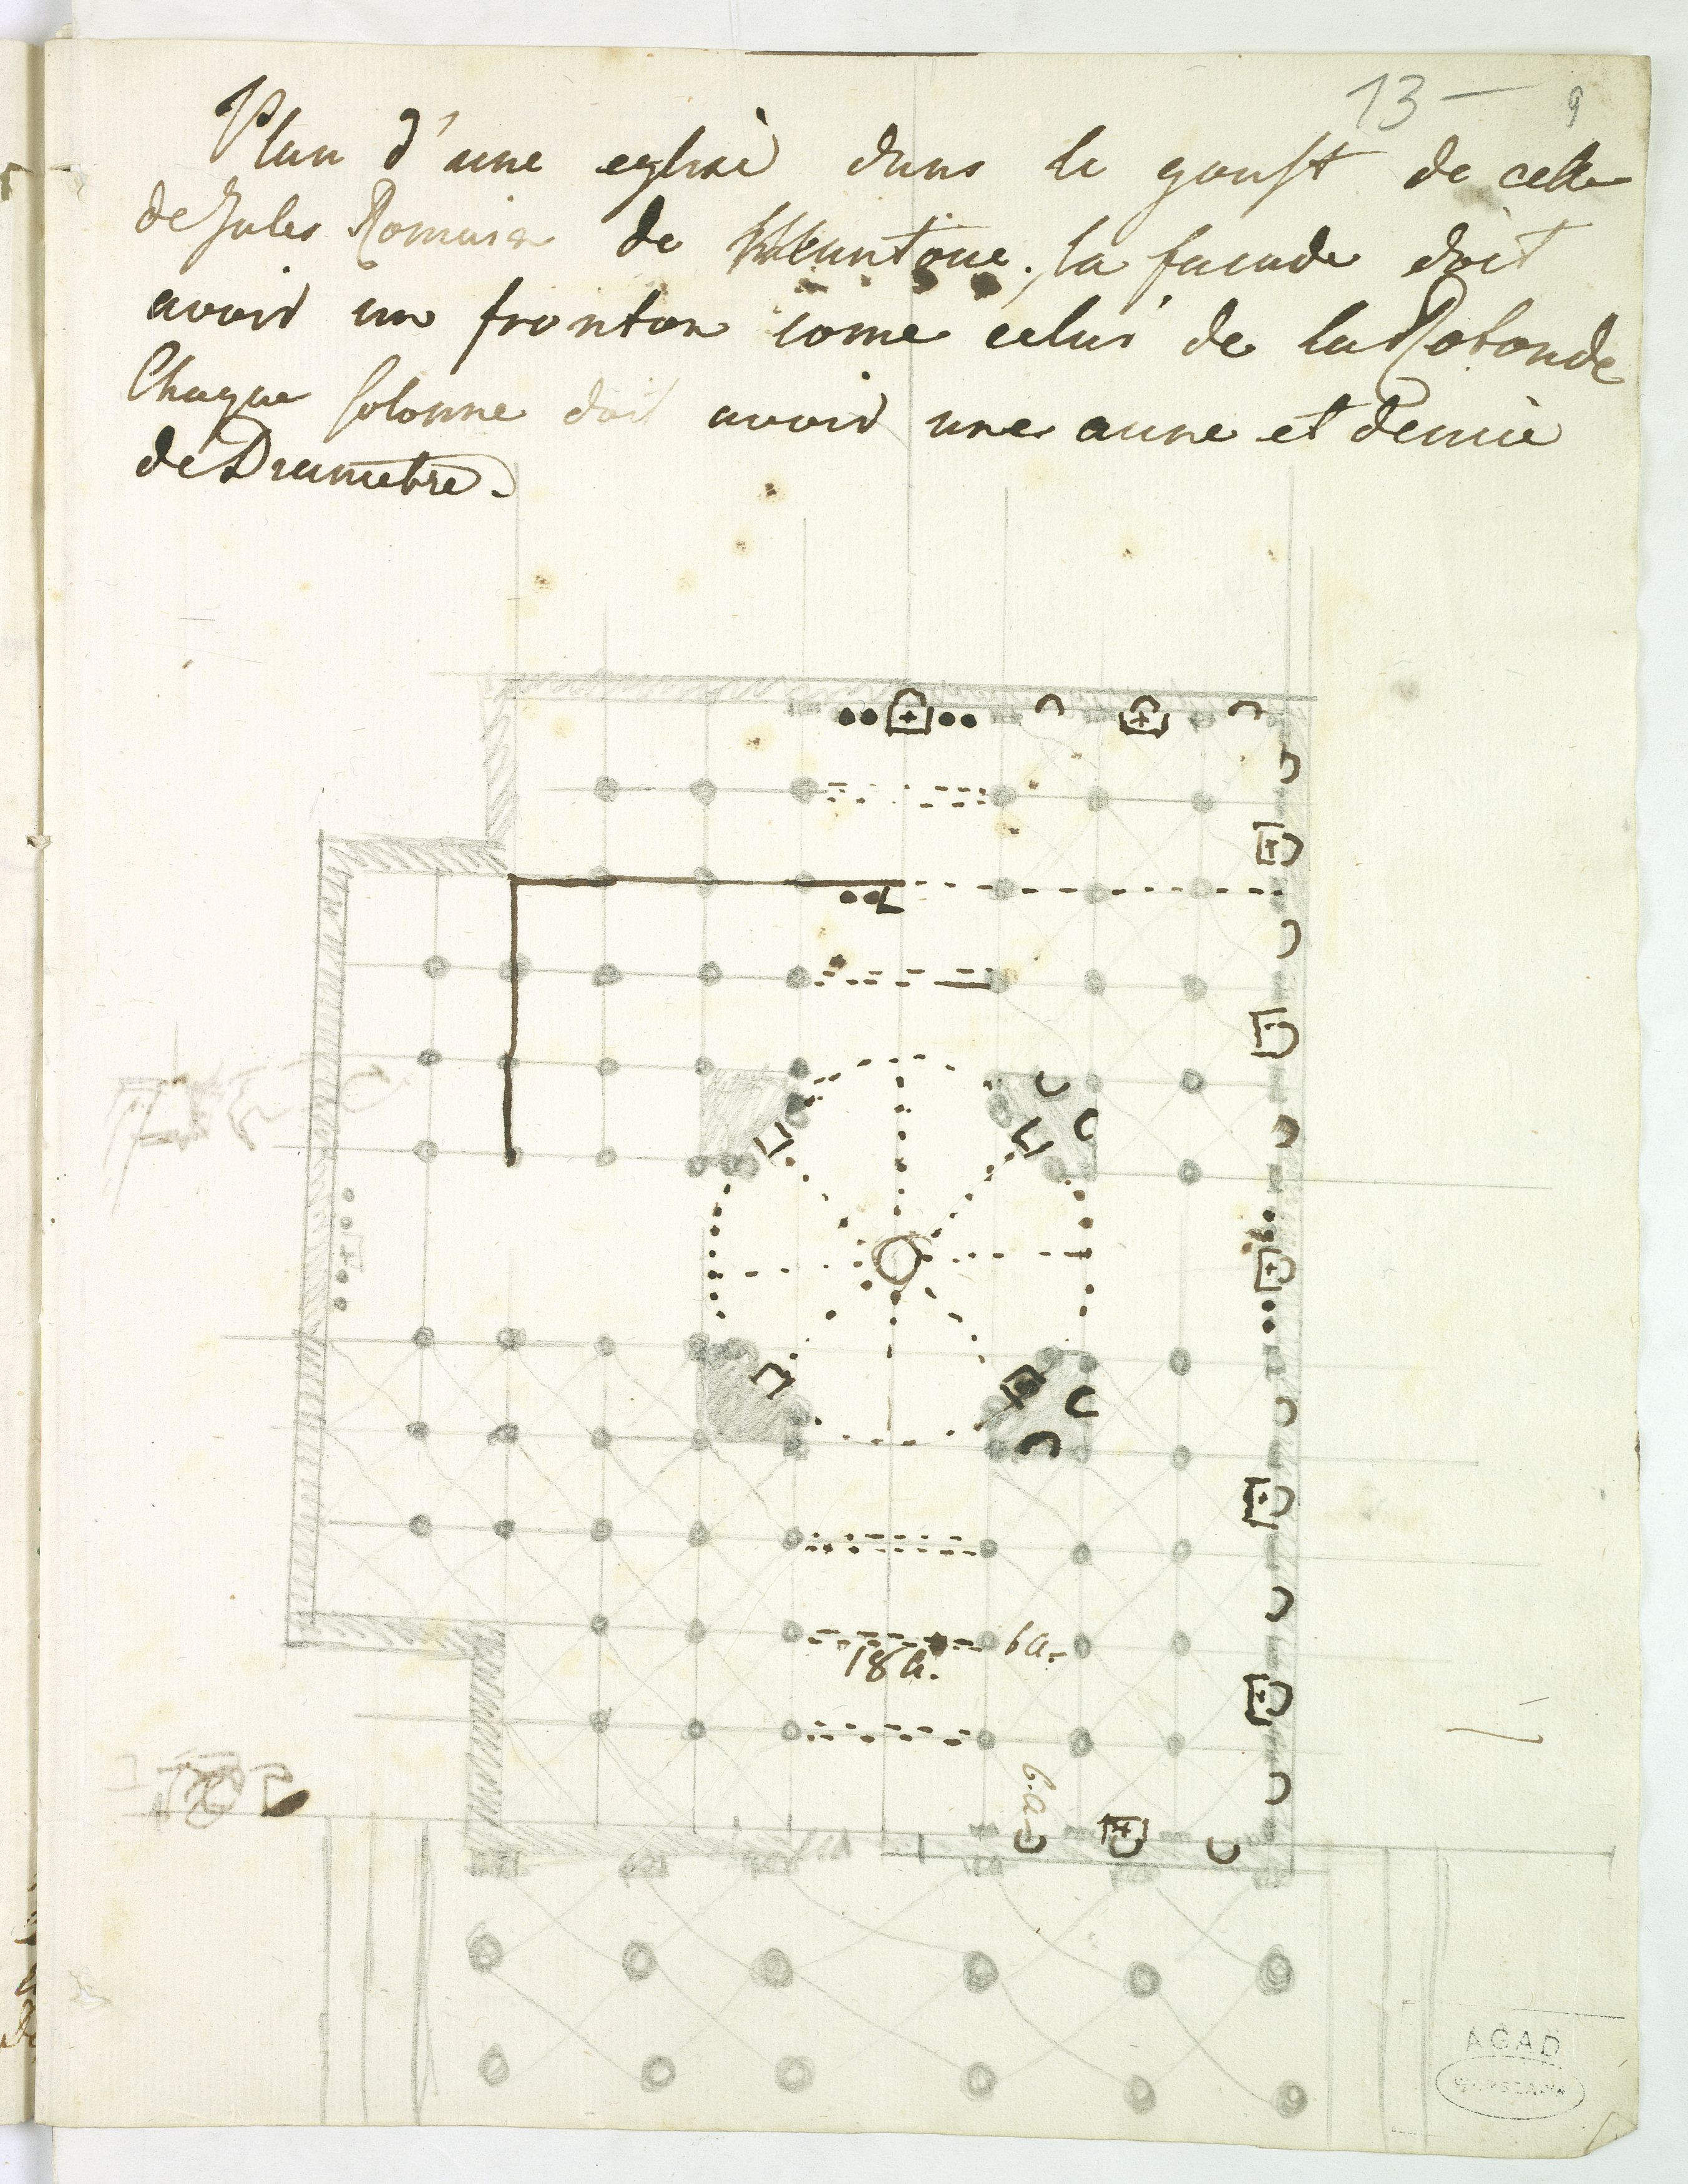 13 — 9
Plan d'une eglise dans le goust de celle
de Jules Romain de Mantoue. la facade doit
avoir un fronton come celui de la Rotonde
Chaque Colonne doit avoir une aune et demie
de Diametre.
6a.
18a.
6.a.
AGAD
WARSZAWA